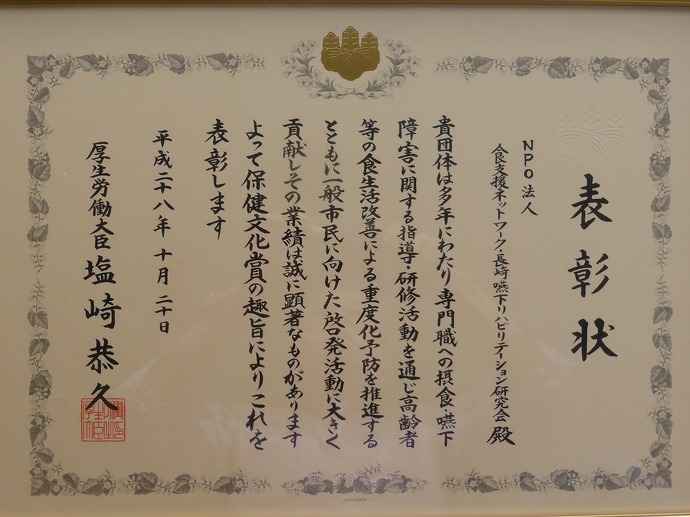 表彰状
NPO法人
食支援ネットワーク・長崎嚥下リハビリテイション研究会 殿
貴団体は多年にわたり専門職への摂食・嚥下
障害に関する指導・研修活動を通じ高齢者
等の食生活改善による重度化予防を推進する
とともに一般市民に向けた啓発活動に大きく
貢献しその業績は誠に顕著なものがあります
よって保健文化賞の趣旨によりこれを
表彰します
平成二十八年十月二十日
厚生労働大臣 塩崎恭久